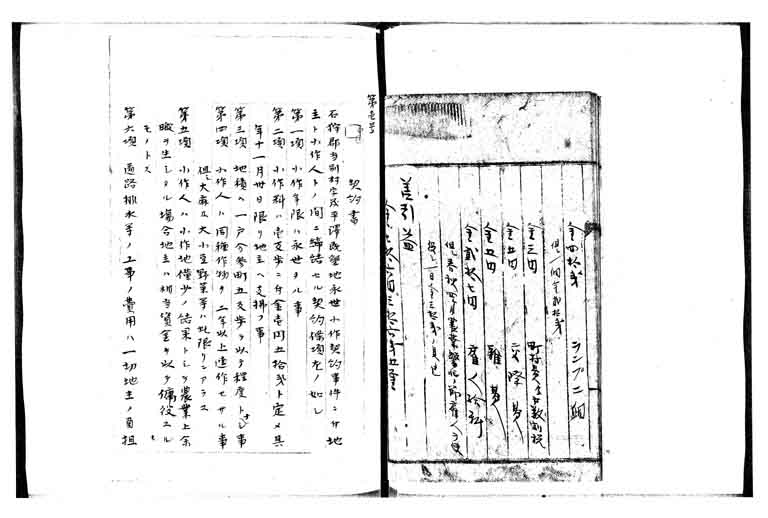 金四拾銭 ランプ二個
但一個金弐拾銭
金三円 町村費人戸数割税
金五円 交際費
金五円 雑費
金弐拾七円 雇人給料
但春秋四ヶ月農業繁忙ノ節雇人ヲ使
差引益
第壱号
契約書
石狩郡当別村字茂平沢既墾地永世小作契約事件ニ付地
主ト小作人トノ間ニ締結セル契約條項左ノ如シ
第一項 小作年限ハ永世タル事
第二項 小作料ハ壱反歩ニ付金壱円五拾銭ト定メ其
年十一月卅日限リ地主ヘ支拂フ事
第三項 地積ハ一戸分参町五反歩ヲ以テ程度トナシ事
第四項 小作人ハ同種作物ヲ二年以上連作セサル事
但大麻及大小豆野菜等ハ此限リニアラス
第五項 小作人ハ小作地僅少ノ結果トシテ農業上余
暇ヲ生シタル場合地主ハ相当賃金ヲ以テ傭役スル
モノトス
第六項 道路排水等ノ工事ノ費用ハ一切地主ノ負担